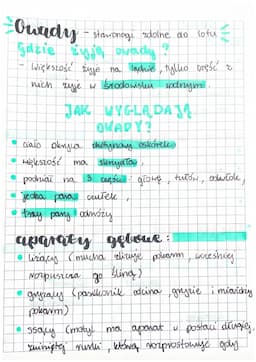 Owady - stawonogi zdolne do lotu
gdzie żyją owady?
- większość żyje na lądzie, tylko część z
nich żyje w środowisku wodnym.
JAK WYGLĄDAJĄ
OWADY?
• ciało okrywa chitynowy oskórek
• większość ma skrzydła,
• podział na 3 części: głowę, tułów, odwłok,
• jedna para czułek,
• trzy pary odnóży
aparaty gębowe:
• liżący (mucha zlizuje pokarm, wcześniej
rozpuszcza go śliną)
• gryzący (pasikonik odcina, gryzie i miażdży
pokarm)
• ssący (motyl ma aparat w postaci długiej,
zwiniętej rurki, którą rozprostowuje gdy